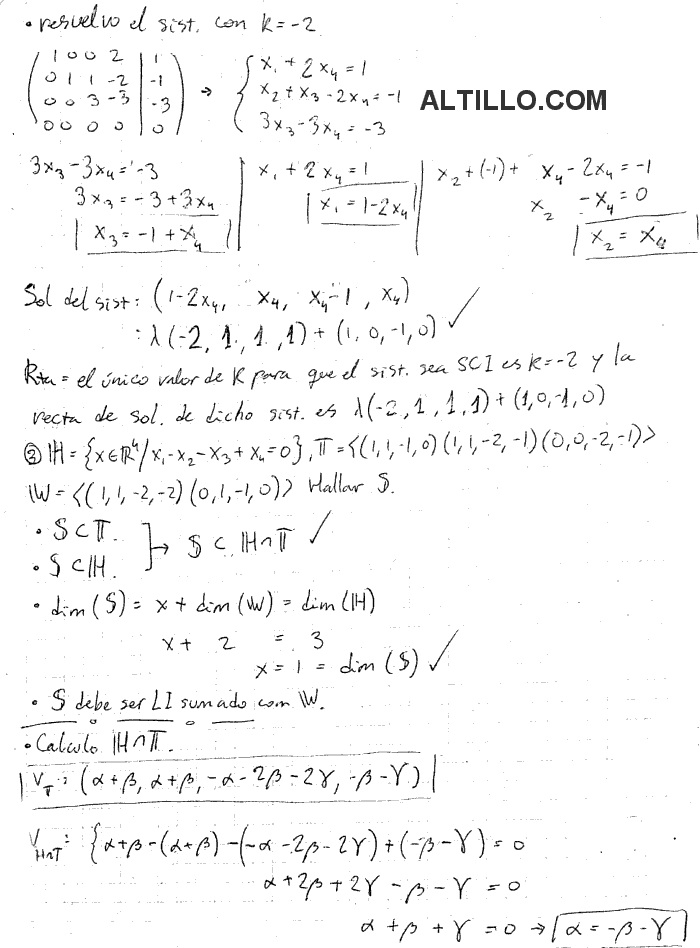 • resuelvo el sist. con k=-2
( 1 0 0 2 | 1 ) → { x₁ + 2x₄ = 1
( 0 1 1 -2 | -1 ) x₂ + x₃ - 2x₄ = -1
( 0 0 3 -3 | -3 ) 3x₃ - 3x₄ = -3
( 0 0 0 0 | 0 )
ALTILLO.COM
3x₃ - 3x₄ = -3
3x₃ = -3 + 3x₄
x₃ = -1 + x₄
x₁ + 2x₄ = 1
x₁ = 1 - 2x₄
x₂ + (-1) + x₄ - 2x₄ = -1
x₂ - x₄ = 0
x₂ = x₄
Sol del sist: (1-2x₄, x₄, x₄-1, x₄)
: λ(-2, 1, 1, 1) + (1, 0, -1, 0) ✓
Rta = el único valor de K para que el sist. sea SCI es k=-2 y la
recta de sol. de dicho sist. es λ(-2, 1, 1, 1) + (1, 0, -1, 0)
② ℍ = {x ∈ ℝ⁴ / x₁ - x₂ - x₃ + x₄ = 0}, 𝕋 = <(1,1,-1,0) (1,1,-2,-1) (0,0,-2,-1)>
𝕎 = <(1,1,-2,-2) (0,1,-1,0)> Hallar 𝕊.
• 𝕊 ⊂ 𝕋.
• 𝕊 ⊂ ℍ.
] → 𝕊 ⊂ ℍ∩𝕋 ✓
• dim(𝕊) = x + dim(𝕎) = dim(ℍ)
x + 2 = 3
x = 1 = dim(𝕊) ✓
• 𝕊 debe ser LI sumado con 𝕎.
• Calculo ℍ∩𝕋.
V_𝕋 : (α+β, α+β, -α-2β-2γ, -β-γ)
V_ℍ∩𝕋 : {α+β-(α+β)-(-α-2β-2γ)+(-β-γ) = 0
α+2β+2γ-β-γ = 0
α+β+γ = 0 → α = -β-γ